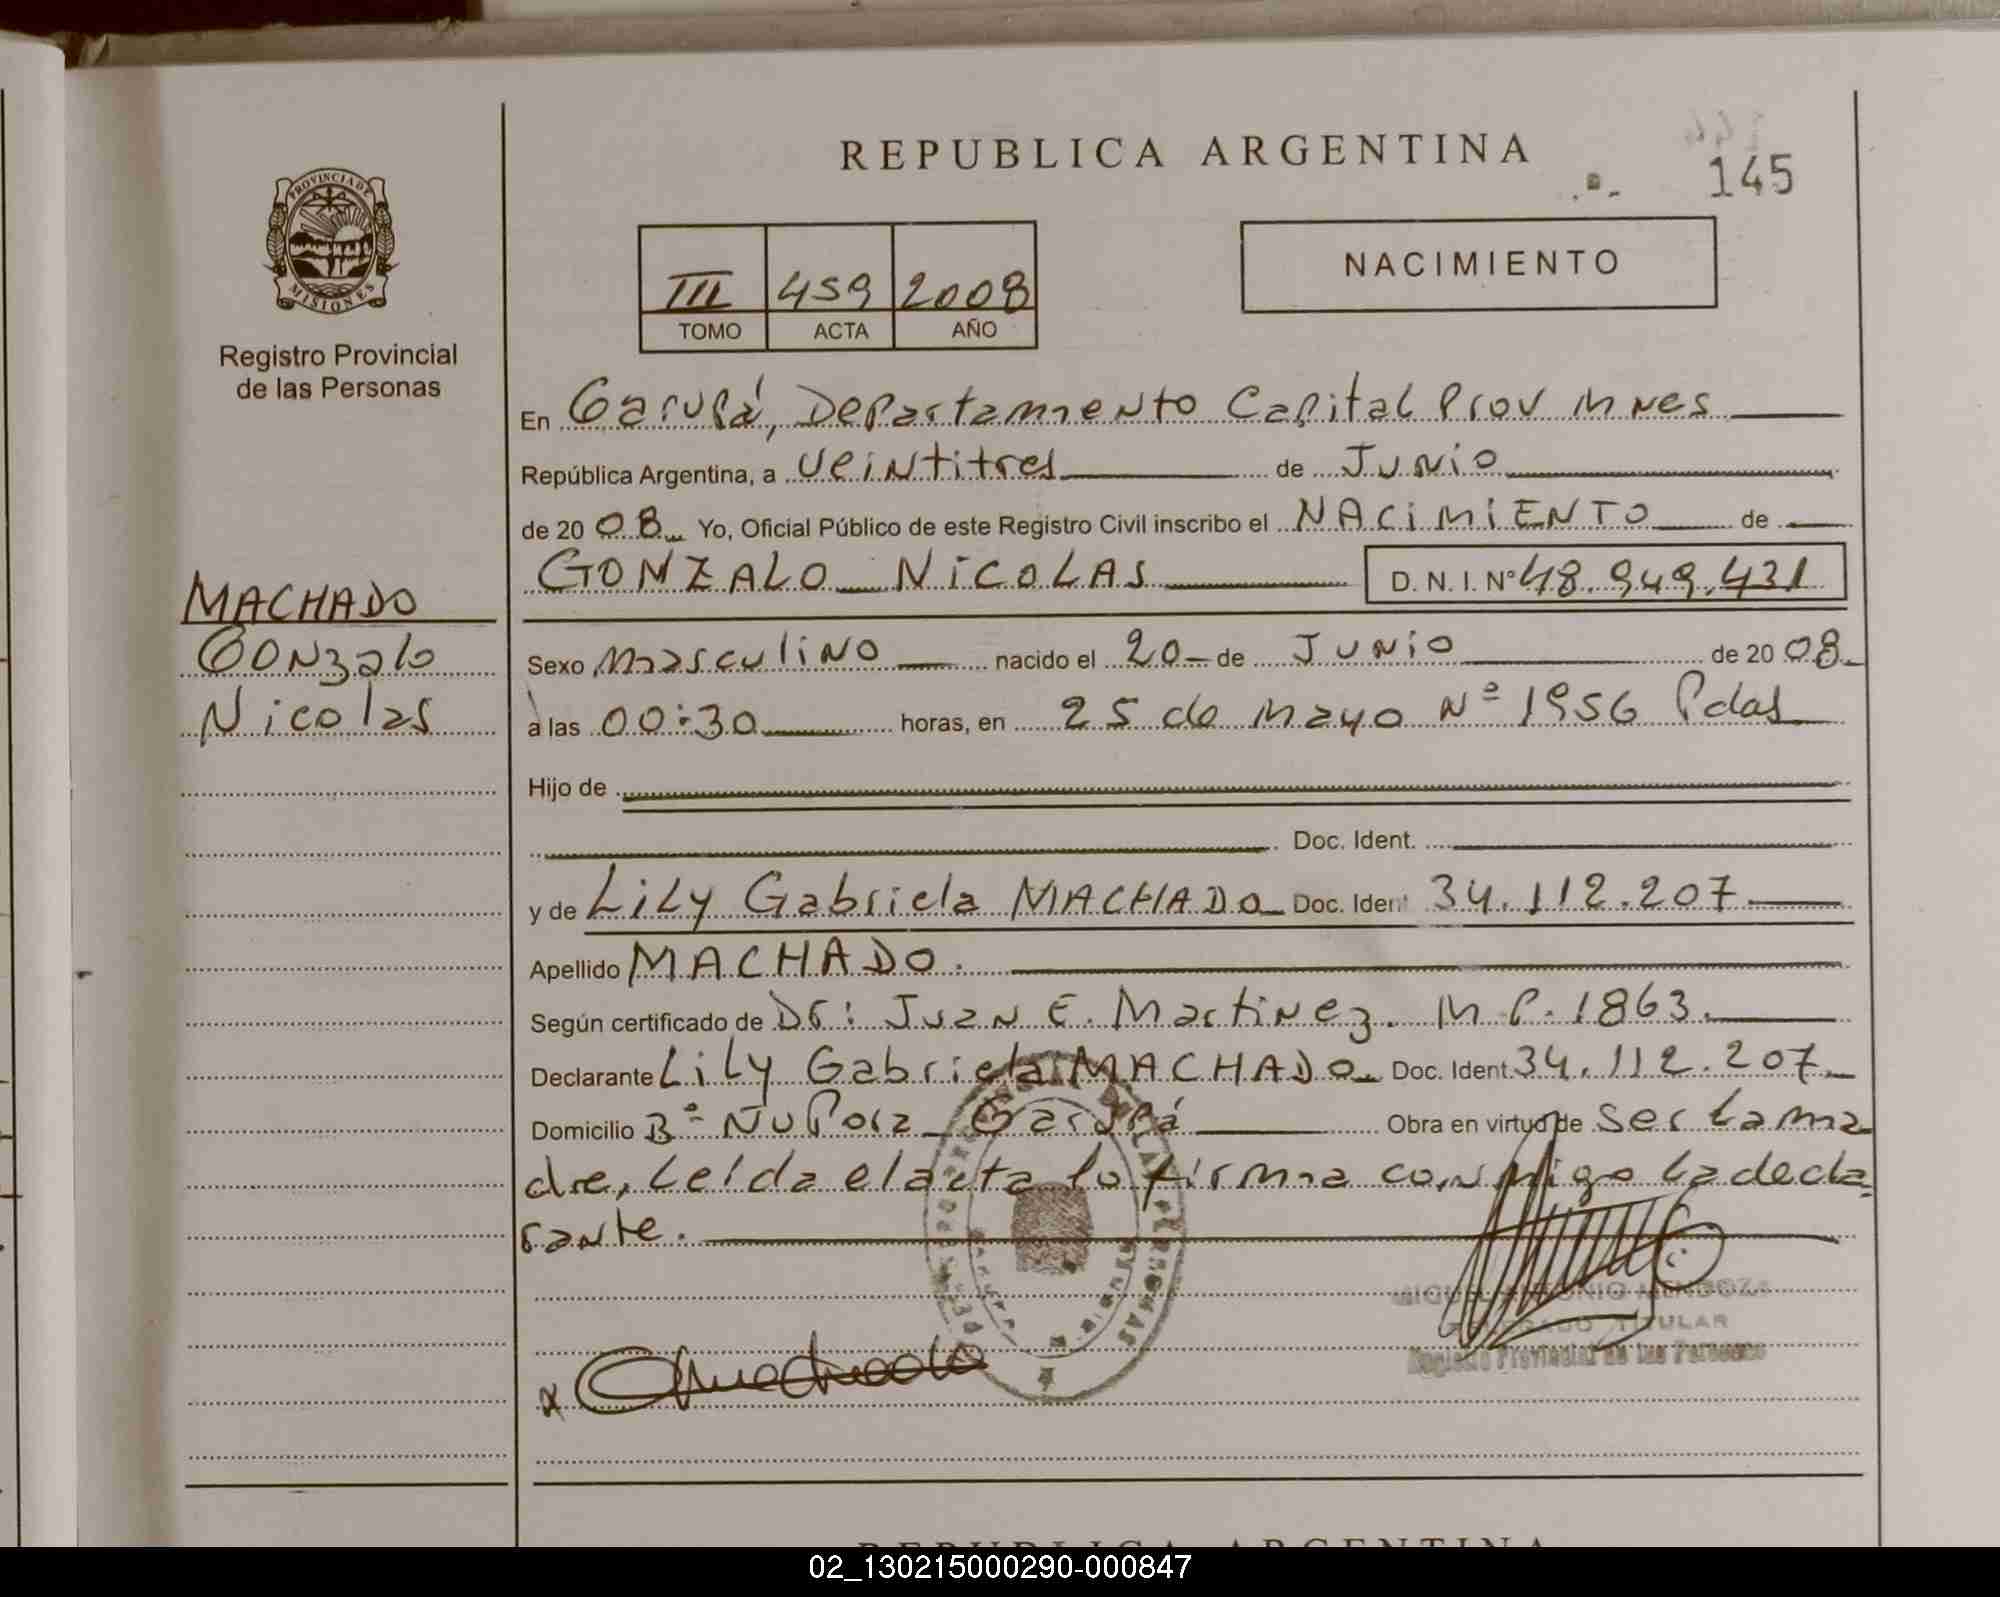 REPUBLICA ARGENTINA
145
PROVINCIA DE
MISIONES
Registro Provincial
de las Personas
III 459 2008
TOMO ACTA AÑO
NACIMIENTO
En Garupá, Departamento Capital Prov Mnes
República Argentina, a veintitres de Junio
de 20 08 Yo, Oficial Público de este Registro Civil inscribo el NACIMIENTO de
GONZALO NICOLAS D. N. I. Nº 48.949.431
MACHADO
Gonzalo
Nicolas
Sexo masculino nacido el 20 de Junio de 20 08
a las 00:30 horas, en 25 de mayo Nº 1956 Pdas
Hijo de
Doc. Ident.
y de Lily Gabriela MACHADO Doc. Ident 34.112.207
Apellido MACHADO.
Según certificado de Dr: Juan E. Martinez. M.P. 1863.
Declarante Lily Gabriela MACHADO Doc. Ident. 34.112.207
Domicilio Bº Ñu Pora Garupá Obra en virtud de ser la ma
dre, Leída el acta lo firma conmigo la decla
rante.
MIGUEL ANTONIO MENDOZA
DELEGADO TITULAR
Registro Provincial de las Personas
REPUBLICA ARGENTINA
02_130215000290-000847